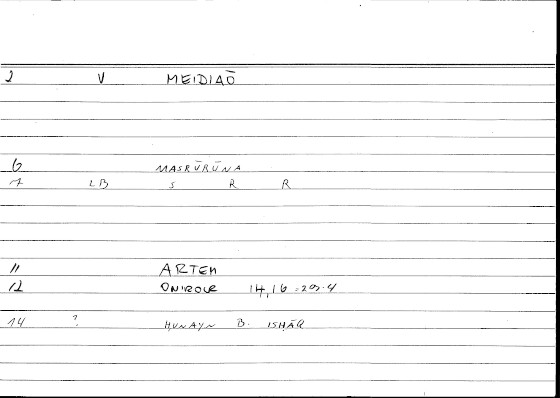 2 V MEIDIAŌ
6 MASRŪRŪNA
7 LB S R R
11 ARTEM
12 ONIROCR 14,16 = 29.4
14 ? ḤUNAYN B. ISḤĀQ